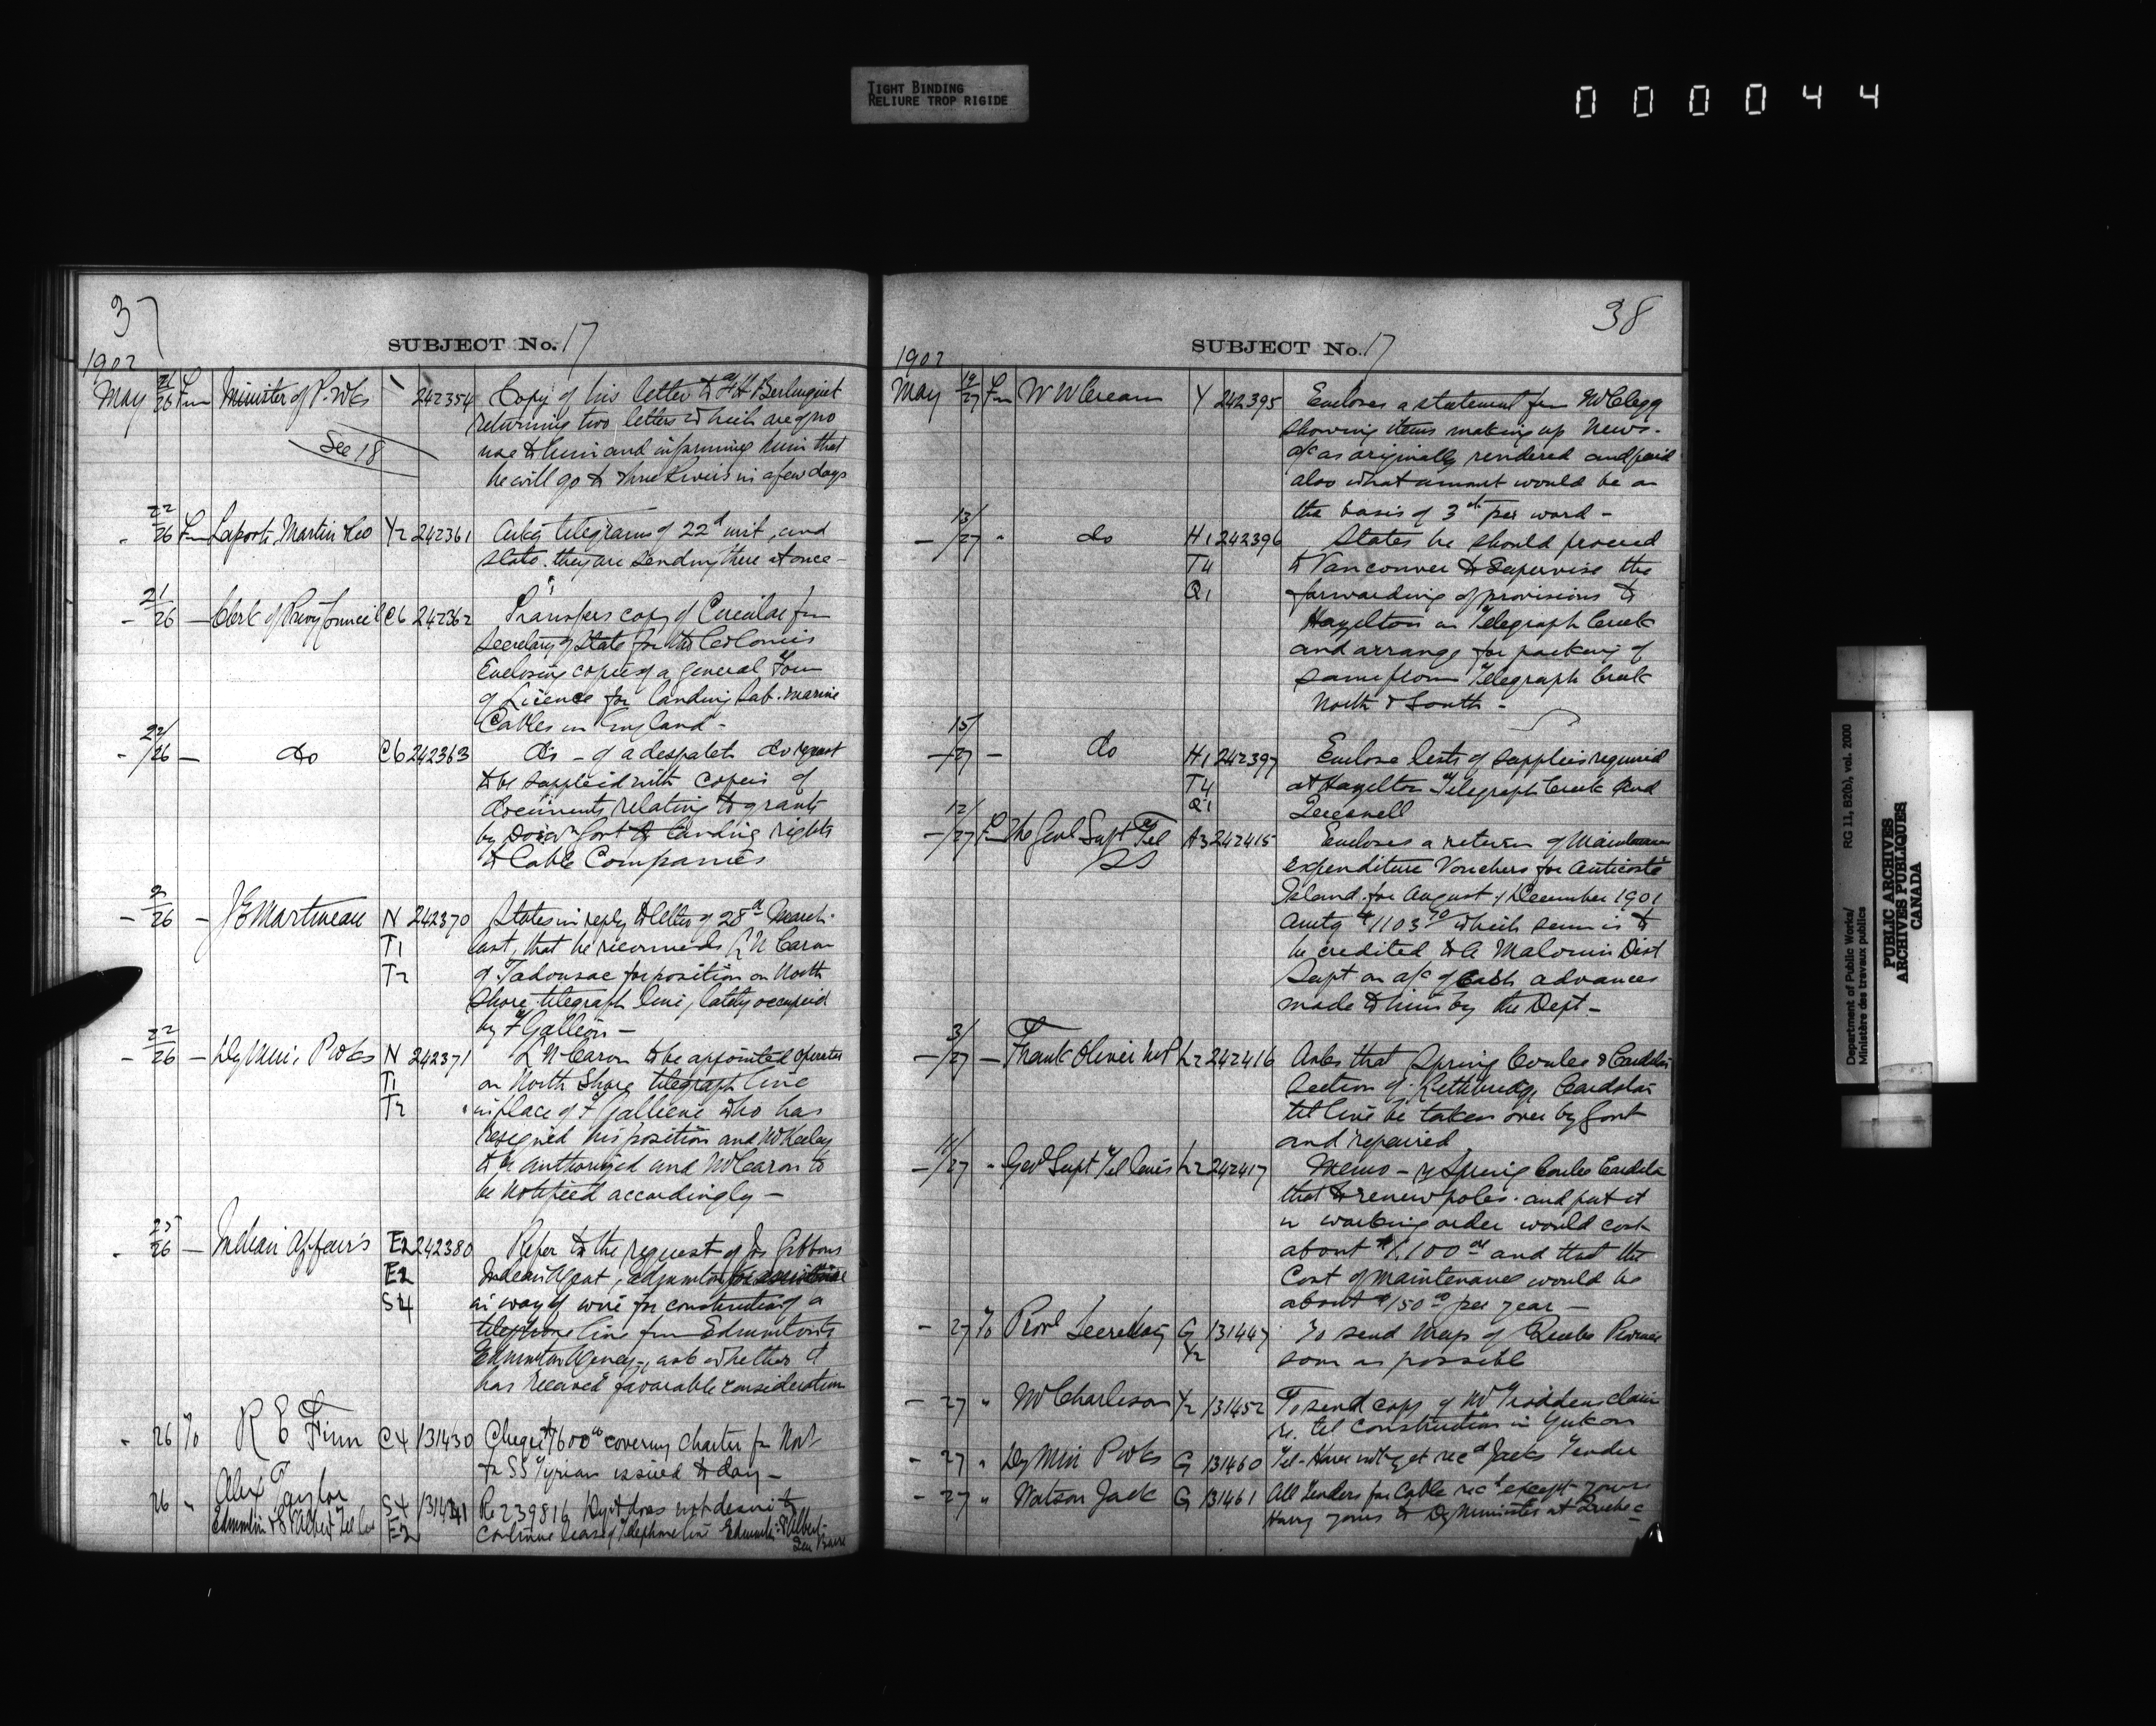 TIGHT BINDING
RELIURE TROP RIGIDE
000044
37
SUBJECT No. 17
1902
May 21/26 Fm Minister of P. Wks 242354 Copy of his letter to F H Berlinguet
returning two letters which are of no
See 18
use to him and informing him that
he will go to three Rivers in a few days
- 22/26 Fm Laporte Martin & Co Y2 242361 telegrams of 22d inst, and
state they are sending there at once -
- 21/26 - Clerk of Privy Council C6 242362 Transfers copy of Circular fm
Secretary of State for the Colonies
Enclosing copies of a general Form
of Licence for landing Sub-marine
Cables in England -
- 22/26 - do C6 242363 do - of a despatch do request
to be supplied with copies of
documents relating to grants
by Govt of landing rights
to Cable Companies
- 9/26 - J E Martineau N 242370 States in reply to letter of 28th March
T1 last, that he recommends L N Caron
T2 of Tadousac for position on North
Shore telegraph line, lately occupied
by F Gallien -
- 22/26 - Dy Min. P Wks N 242371 L N Caron to be appointed operator
T1 on North Shore telegraph line
T2 in place of F Gallien who has
resigned his position and Mr Keeley
to be authorized and Mr Caron to
be notified accordingly -
- 25/26 - Indian Affairs E2 242380 Refer to the request of Js Gibbons
E2 Indian Agent, Edmonton for assistance
S4 in way of wire for construction of a
telephone line from Edmonton to
Edmonton Agency, ask whether it
has received favorable consideration
- 26 To R E Finn C4 131430 Cheque $7600 covering charter for
for SS Tyrian issued to day -
26 " Alex Taylor S4 131441 Re 239816 Dept does not desire to
Edmonton & St Albert Tel Co E2 continue lease of telephone line Edmonton St Albert -
38
SUBJECT No. 17
1902
May 19/27 Fm W W Cream Y 242395 Encloses a statement fm Mr Clegg
showing items making up News -
a/c as originally rendered and paid
also what amount would be on
the basis of 3 cts per word -
- 13/27 " do H1 242396 States he should proceed
T4 to Vancouver to supervise the
Q1 forwarding of provisions to
Hazelton on Telegraph Creek
and arrange for packing of
same from Telegraph Creek
North & South -
- 15/27 - do H1 242397 Enclose lists of supplies required
T4 at Hazelton Telegraph Creek and
Q1 Quesnell
- 12/27 Fm The Genl Supt Tel A3 242415 Encloses a return of Maintenance
SS
expenditure Vouchers for Anticosti
Island for August & December 1901
Amtg $1103 70 which sum is to
be credited to A Malouin Dist
Supt on a/c of Cash advances
made to him by the Dept -
- 3/27 - Frank Oliver MP L2 242416 Asks that Spring Coulee & Cardston
section of Lethbridge Cardston
tel line be taken over by Govt
and repaired
- 11/27 " Genl Supt Tel lines L2 242417 Memo - re Spring Coulee Cardston
that to renew poles and put it
in working order would cost
about $1,100 00 and that the
cost of maintenance would be
about $150 00 per year -
- 27 To Provl Secretary G 131447 To send Map of Quebec Province
Y2 soon as possible
- 27 " Mr Charleson Y2 131452 To send copy of Mr claim
re. tel construction in Yukon
- 27 " Dy Min P Wks G 131460 Tel - Have not yet recd Jacks Tender
- 27 " Watson Jack G 131461 All Tenders for Cable recd except yours
Hurry yours to Dy Minister at Quebec -
Department of Public Works/
Ministère des travaux publics
RG 11, B2(b), vol. 2000
PUBLIC ARCHIVES
ARCHIVES PUBLIQUES
CANADA